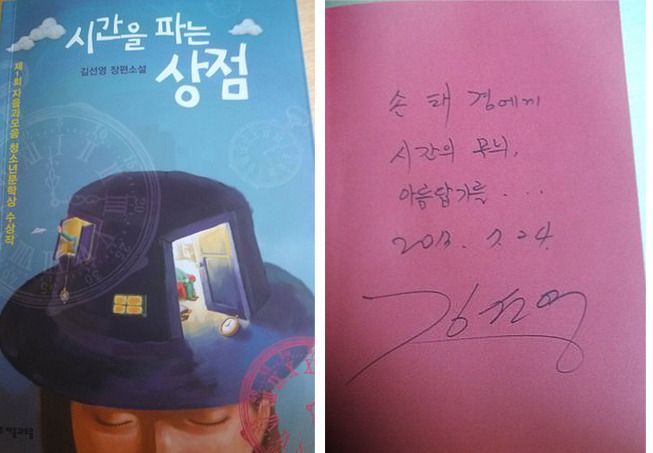 시간을 파는
상점
김선영 장편소설
제1회 자음과모음 청소년문학상 수상작
자음과모음
손 태 경에게
시간의 무늬,
아름답기를...
2013. 7. 24.
김선영